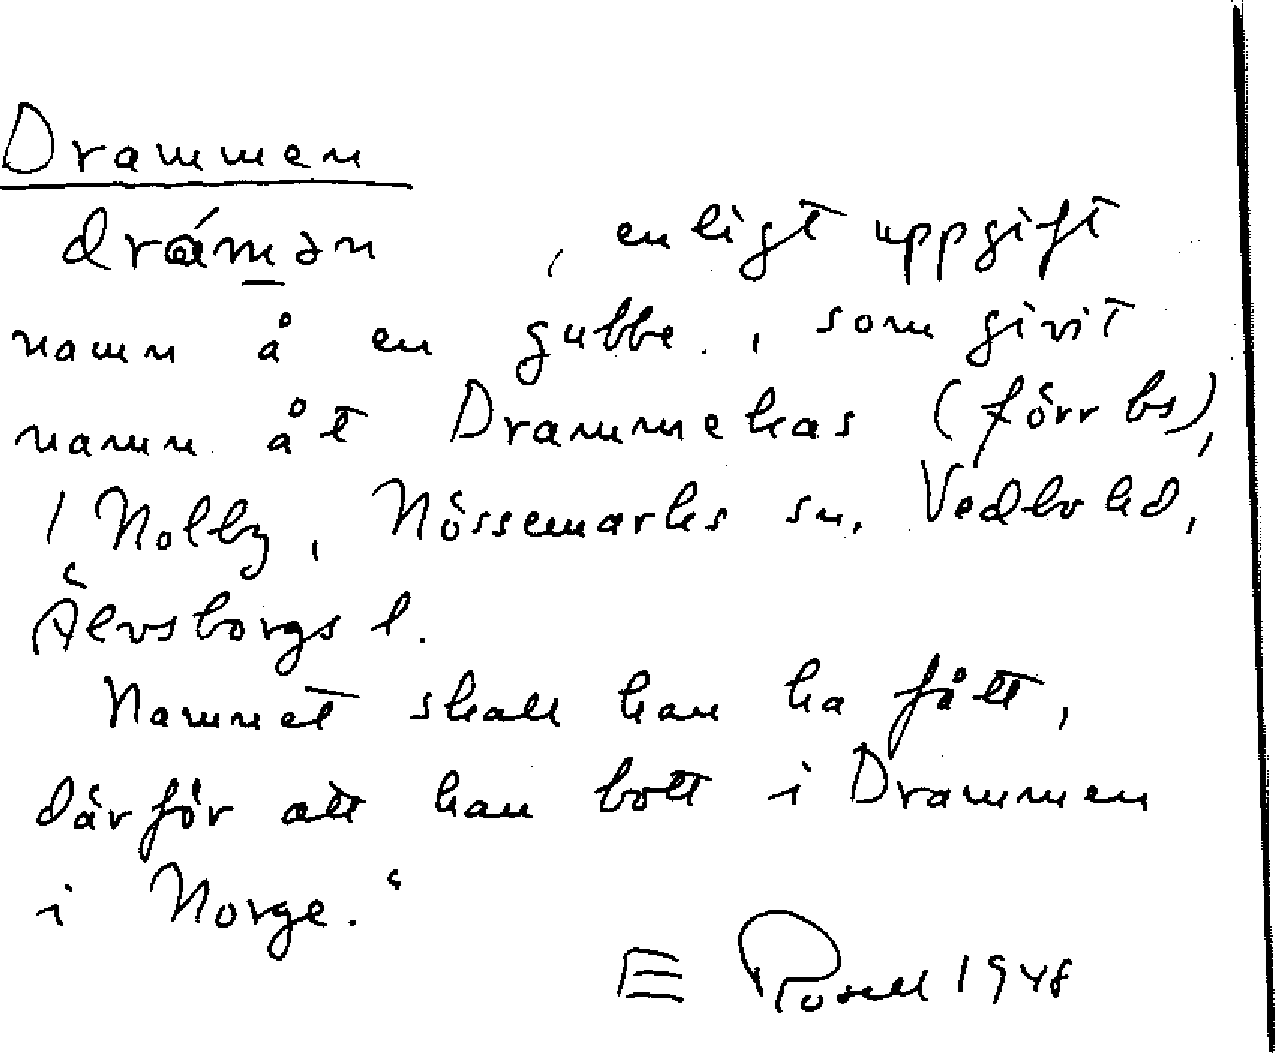 Drammen
drámən , enligt uppgift
namn å en gubbe, som givit
namn åt Drammekas (förr bs),
/ Nolby, Nössemarks sn, Vedbo hd,
Älvsborgs l.
Namnet skall han ha fått,
därför att han bott i Drammen
i Norge."
E Rosell 1948